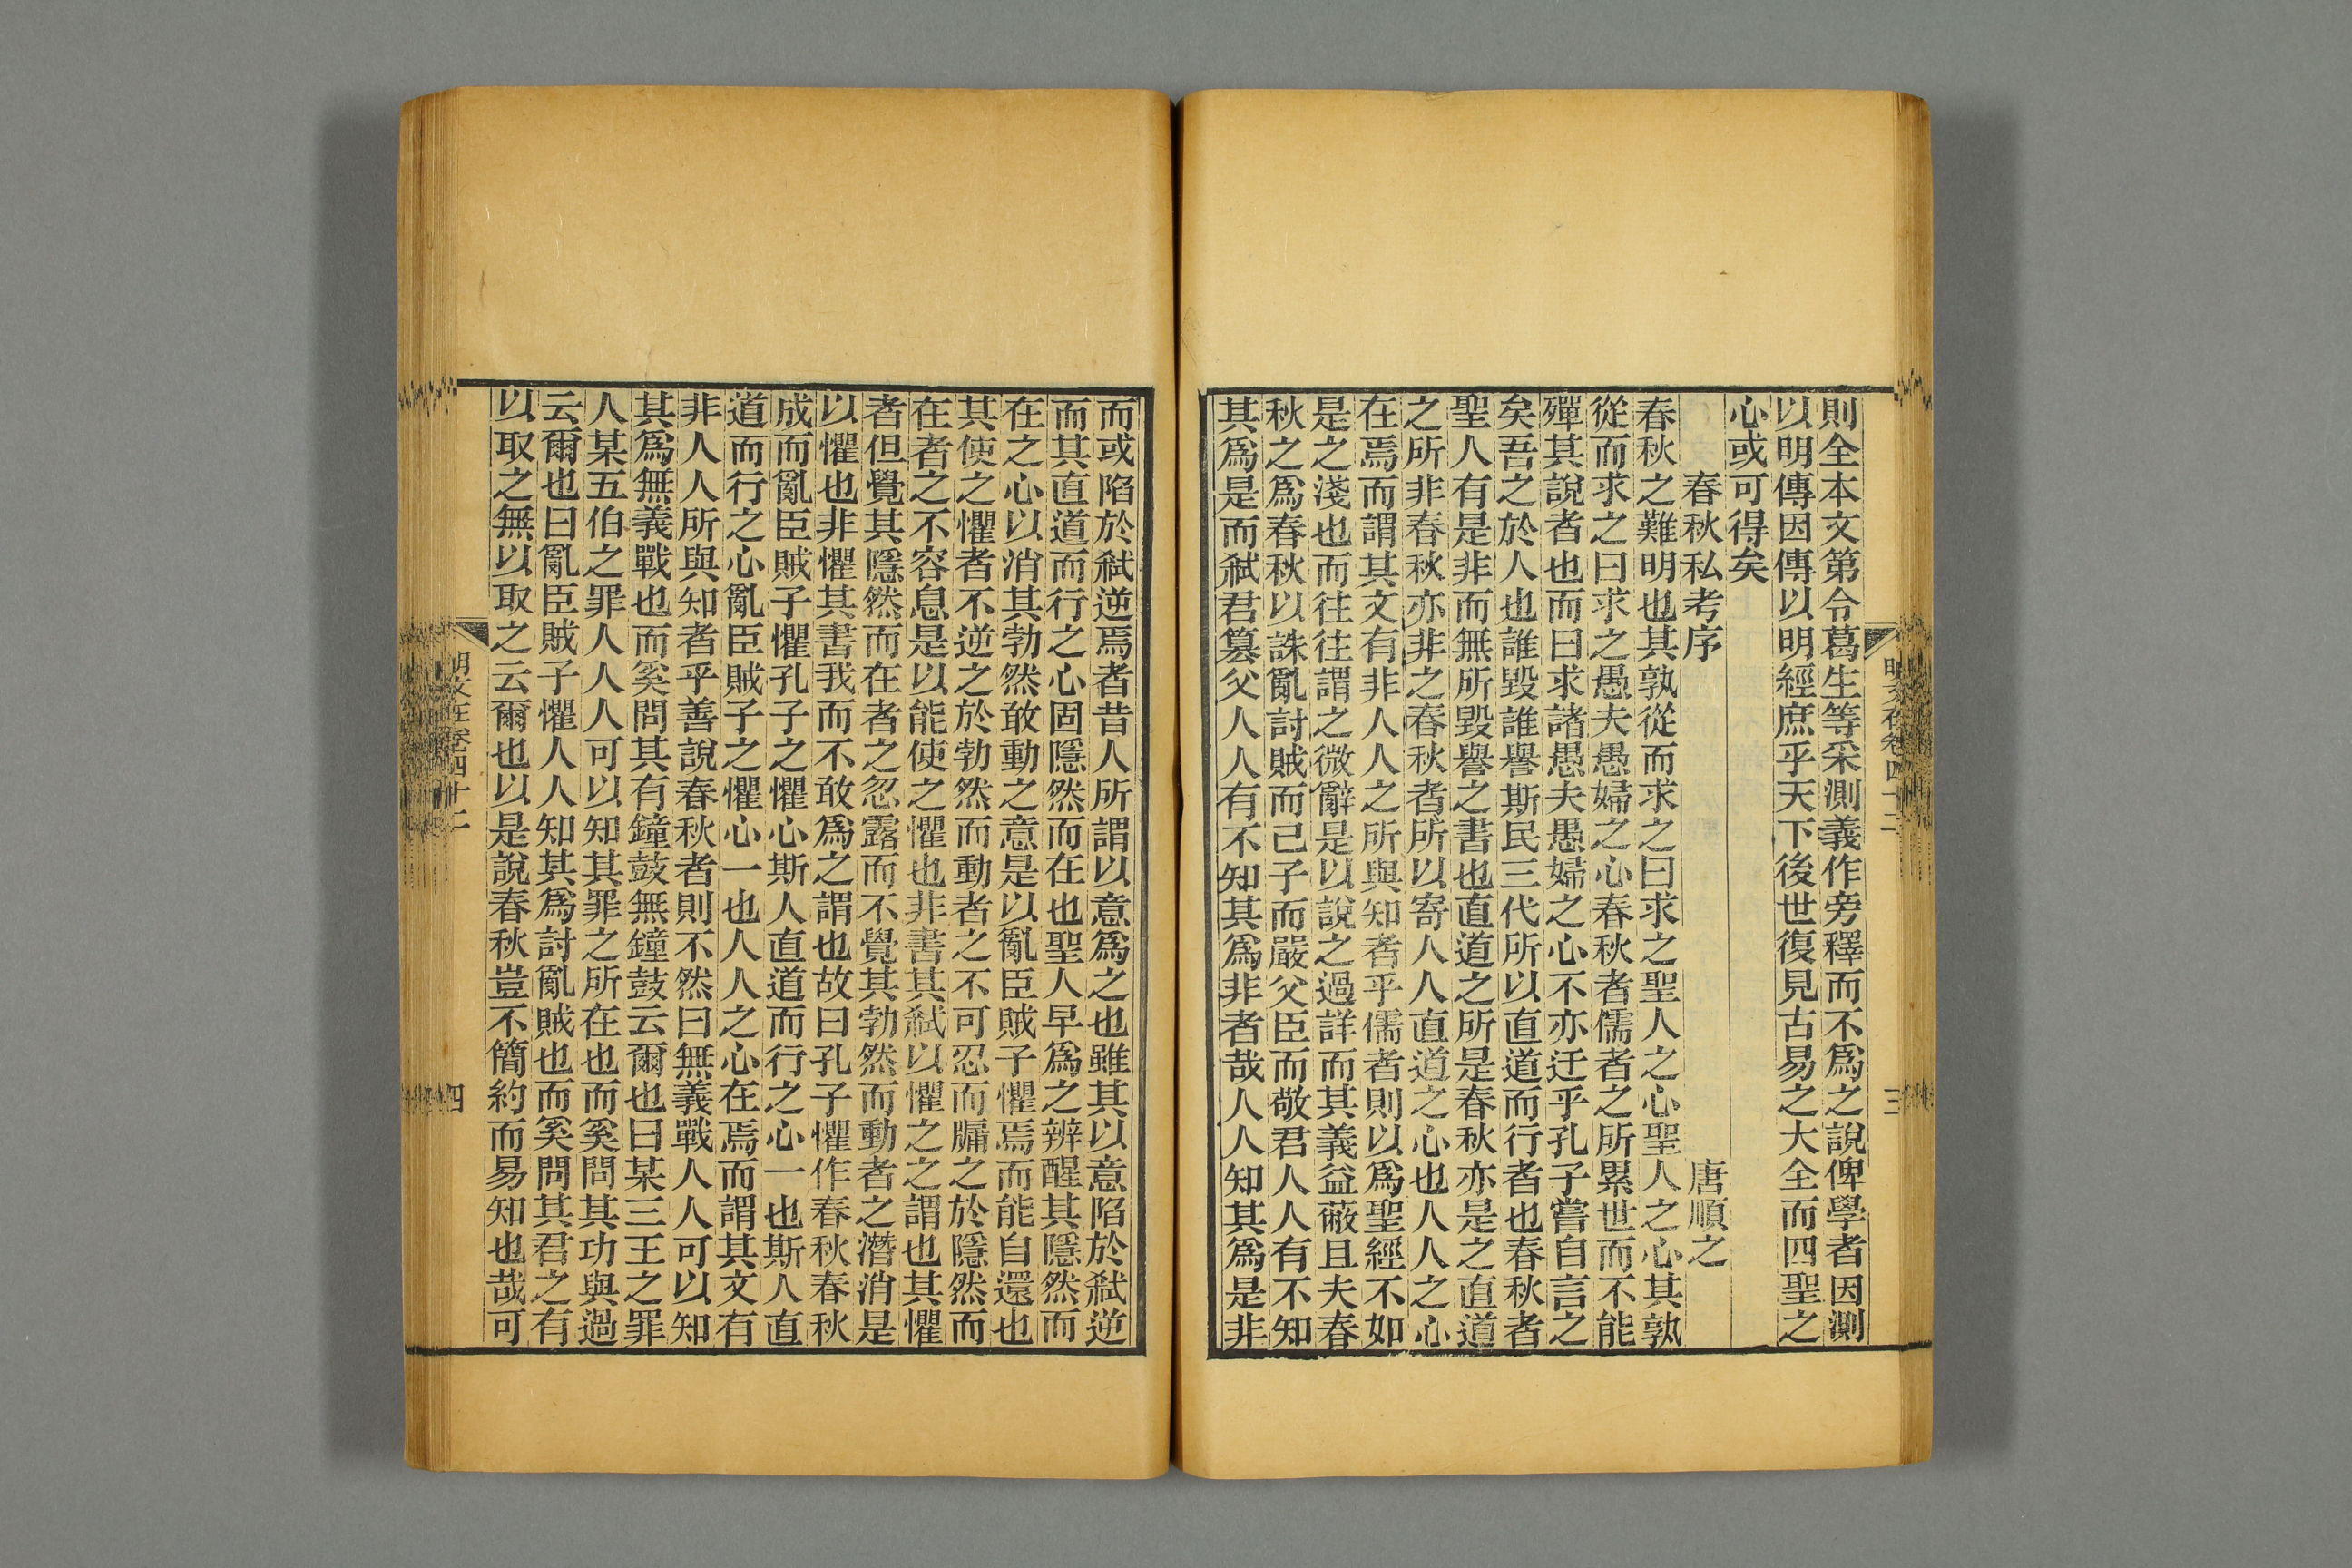 則全本文第令葛生等采測義作旁釋而不爲之說俾學者因測
以明傳因傳以明經庶乎天下後世復見古易之大全而四聖之
心或可得矣
春秋私考序 唐順之
春秋之難明也其孰從而求之曰求之聖人之心聖人之心其孰
從而求之曰求之愚夫愚婦之心春秋者儒者之所累世而不能
殫其說者也而曰求諸愚夫愚婦之心不亦迂乎孔子嘗自言之
矣吾之於人也誰毀誰譽斯民三代所以直道而行者也春秋者
聖人有是非而無所毀譽之書也直道之所是春秋亦是之直道
之所非春秋亦非之春秋者所以寄人人直道之心也人人之心
在焉而謂其文有非人人之所與知者乎儒者則以爲聖經不如
是之淺也而往往謂之微辭是以說之過詳而其義益蔽且夫春
秋之爲春秋以誅亂討賊而已子而嚴父臣而敬君人人有不知
其爲是而弒君簒父人人有不知其爲非者哉人人知其爲是非
明文在卷四十二
三
而或陷於弒逆焉者昔人所謂以意爲之也雖其以意陷於弒逆
而其直道而行之心固隱然而在也聖人早爲之辨醒其隱然而
在之心以消其勃然敢動之意是以亂臣賊子懼焉而能自還也
其使之懼者不逆之於勃然而動者之不可忍而牖之於隱然而
在者之不容息是以能使之懼也非書其弒以懼之之謂也其懼
者但覺其隱然而在者之忽露而不覺其勃然而動者之潛消是
以懼也非懼其書我而不敢爲之謂也故曰孔子懼作春秋春秋
成而亂臣賊子懼孔子之懼心斯人直道而行之心一也斯人直
道而行之心亂臣賊子之懼心一也人人之心在焉而謂其文有
非人人所與知者乎善說春秋者則不然曰無義戰人人可以知
其爲無義戰也而奚問其有鐘鼓無鐘鼓云爾也曰某三王之罪
人某五伯之罪人人人可以知其罪之所在也而奚問其功與過
云爾也曰亂臣賊子懼人人知其爲討亂賊也而奚問其君之有
以取之無以取之云爾也以是說春秋豈不簡約而易知也哉可
明文在卷四十二
四